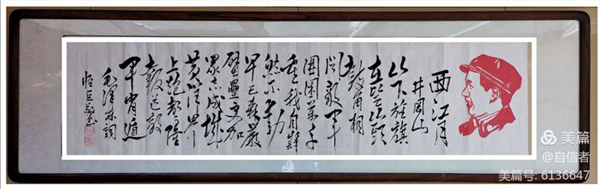 西江月
井岡山
山下旌旗
在望山头
鼓角相
闻敌军
围困万千
重我自岿
然不动
早已森严
壁垒更加
众志成城
黄洋界
上炮声隆
报道敌
军宵遁
毛泽东词
美篇
@自信者
美篇号: 6136647